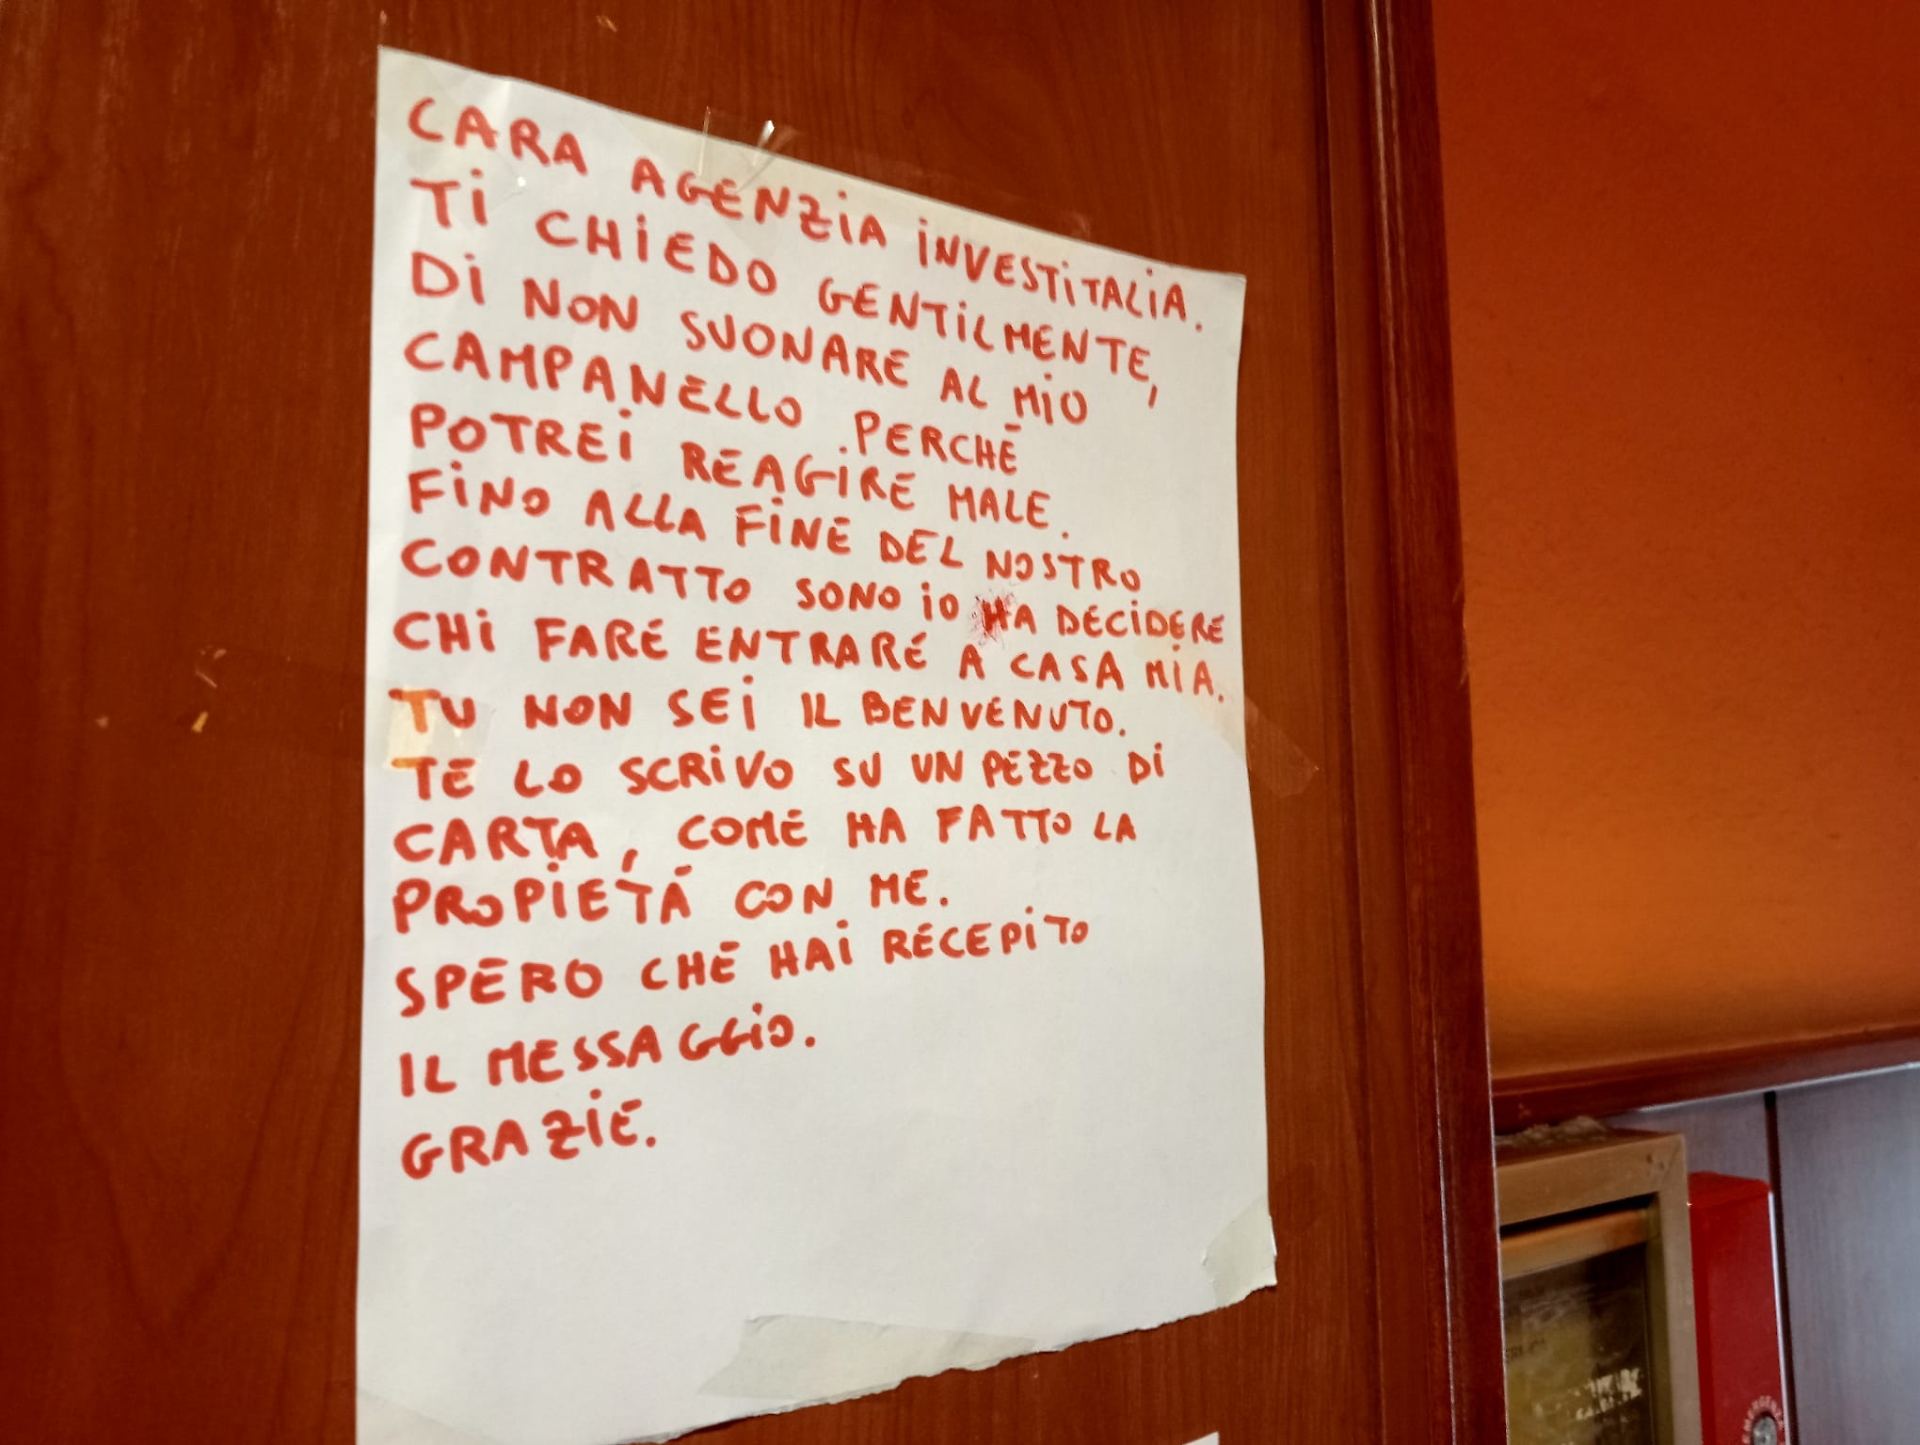 CARA AGENZIA INVESTITALIA.
TI CHIEDO GENTILMENTE,
DI NON SUONARE AL MIO
CAMPANELLO PERCHÉ
POTREI REAGIRE MALE.
FINO ALLA FINE DEL NOSTRO
CONTRATTO SONO IO HA DECIDERE
CHI FARE ENTRARE A CASA MIA.
TU NON SEI IL BENVENUTO.
TE LO SCRIVO SU UN PEZZO DI
CARTA, COME HA FATTO LA
PROPIETÁ CON ME.
SPERO CHE HAI RECEPITO
IL MESSAGGIO.
GRAZIE.